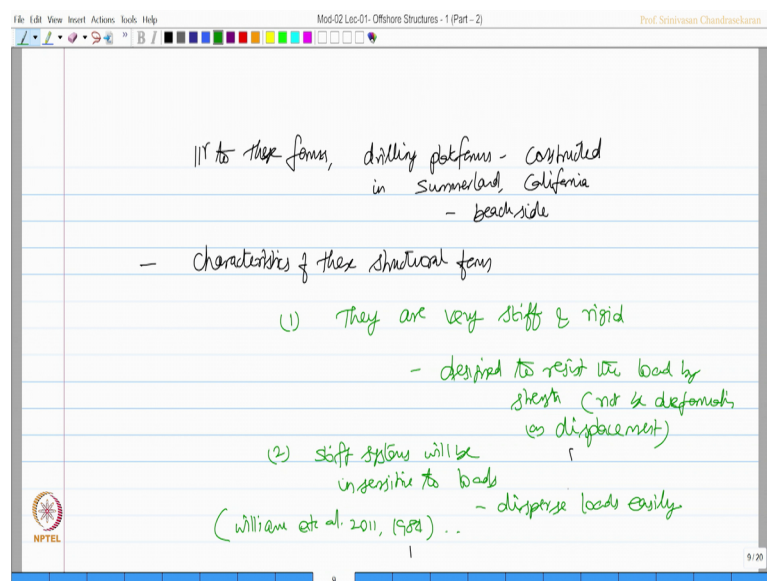 File Edit View Insert Actions Tools Help
Mod-02 Lec-01- Offshore Structures - 1 (Part – 2)
Prof. Srinivasan Chandrasekaran
B I
llr to these forms, drilling platforms - constructed
in Summerland, California
- beach side
- Characteristics of these structural forms
(1) They are very stiff & rigid
- designed to resist the load by
strength (not by deformation
(or displacement)
(2) stiff systems will be
insensitive to loads
- disperse loads easily
(William et al. 2011, 1984) ..
NPTEL
9/20
9